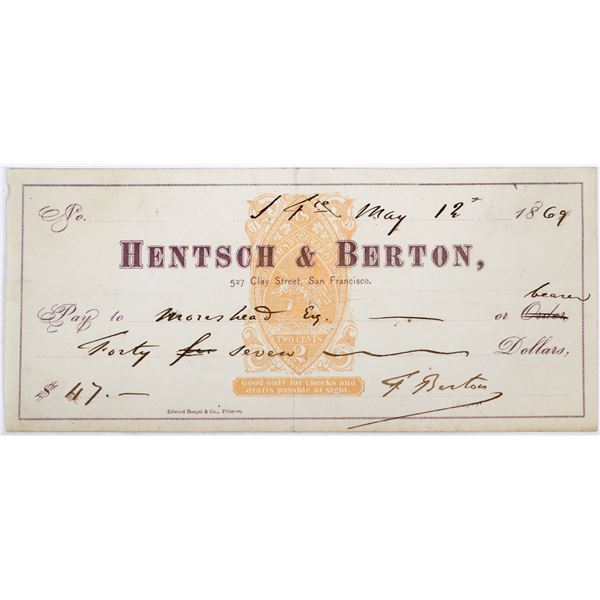 No. S. Fco May 12th 1869
U.S. INTER. REV.
HENTSCH & BERTON,
527 Clay Street, San Francisco.
bearer
Pay to Moreshead Esq. or Order
Forty fev seven Dollars,
TWO CENTS
2
$ 47.—
Good only for checks and
drafts payable at sight.
F. Berton
Edward Bosqui & Co., Printers.